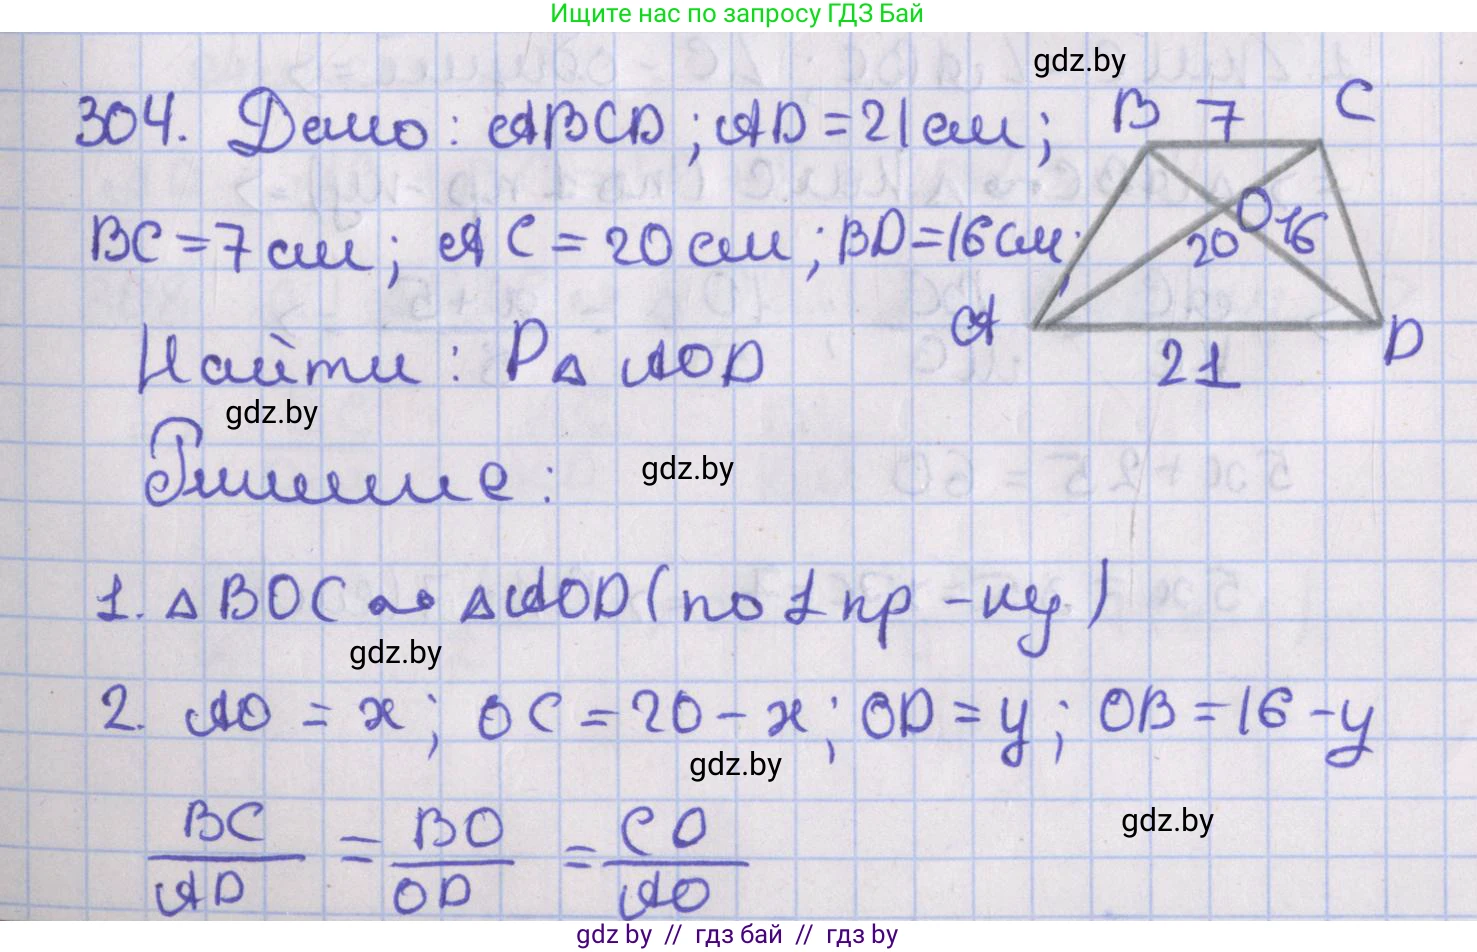 Ищите нас по запросу ГДЗ Бай
gdz.by
304. Дано: ABCD; AD = 21 см;
B 7 C
BC = 7 см; AC = 20 см; BD = 16 см;
O
20 16
A
D
21
Найти: P△ AOD
gdz.by
Решение:
gdz.by
1. △ BOC ∾ △ AOD (по 1 пр-ку)
gdz.by
2. AO = x; OC = 20 - x; OD = y; OB = 16 - y
gdz.by
BC/AD = BO/OD = CO/AO
gdz.by
gdz by // гдз бай // гдз by